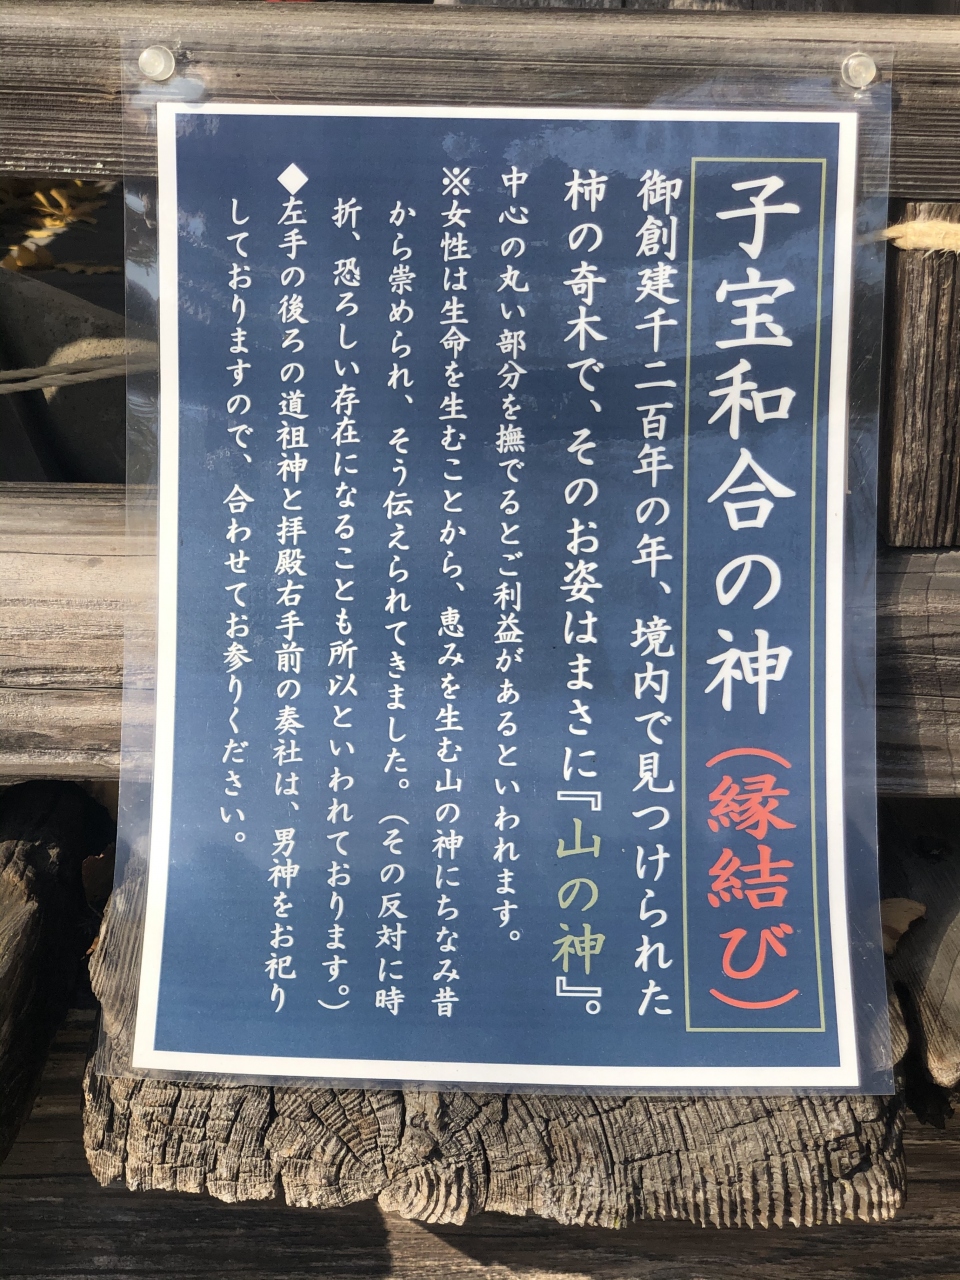 子宝和合の神（縁結び）
御創建千二百年の年、境内で見つけられた
柿の奇木で、そのお姿はまさに『山の神』。
中心の丸い部分を撫でるとご利益があるといわれます。
※女性は生命を生むことから、恵みを生む山の神にちなみ昔
から崇められ、そう伝えられてきました。（その反対に時
折、恐ろしい存在になることも所以といわれております。）
◆左手の後ろの道祖神と拝殿右手前の奏社は、男神をお祀り
しておりますので、合わせてお参りください。